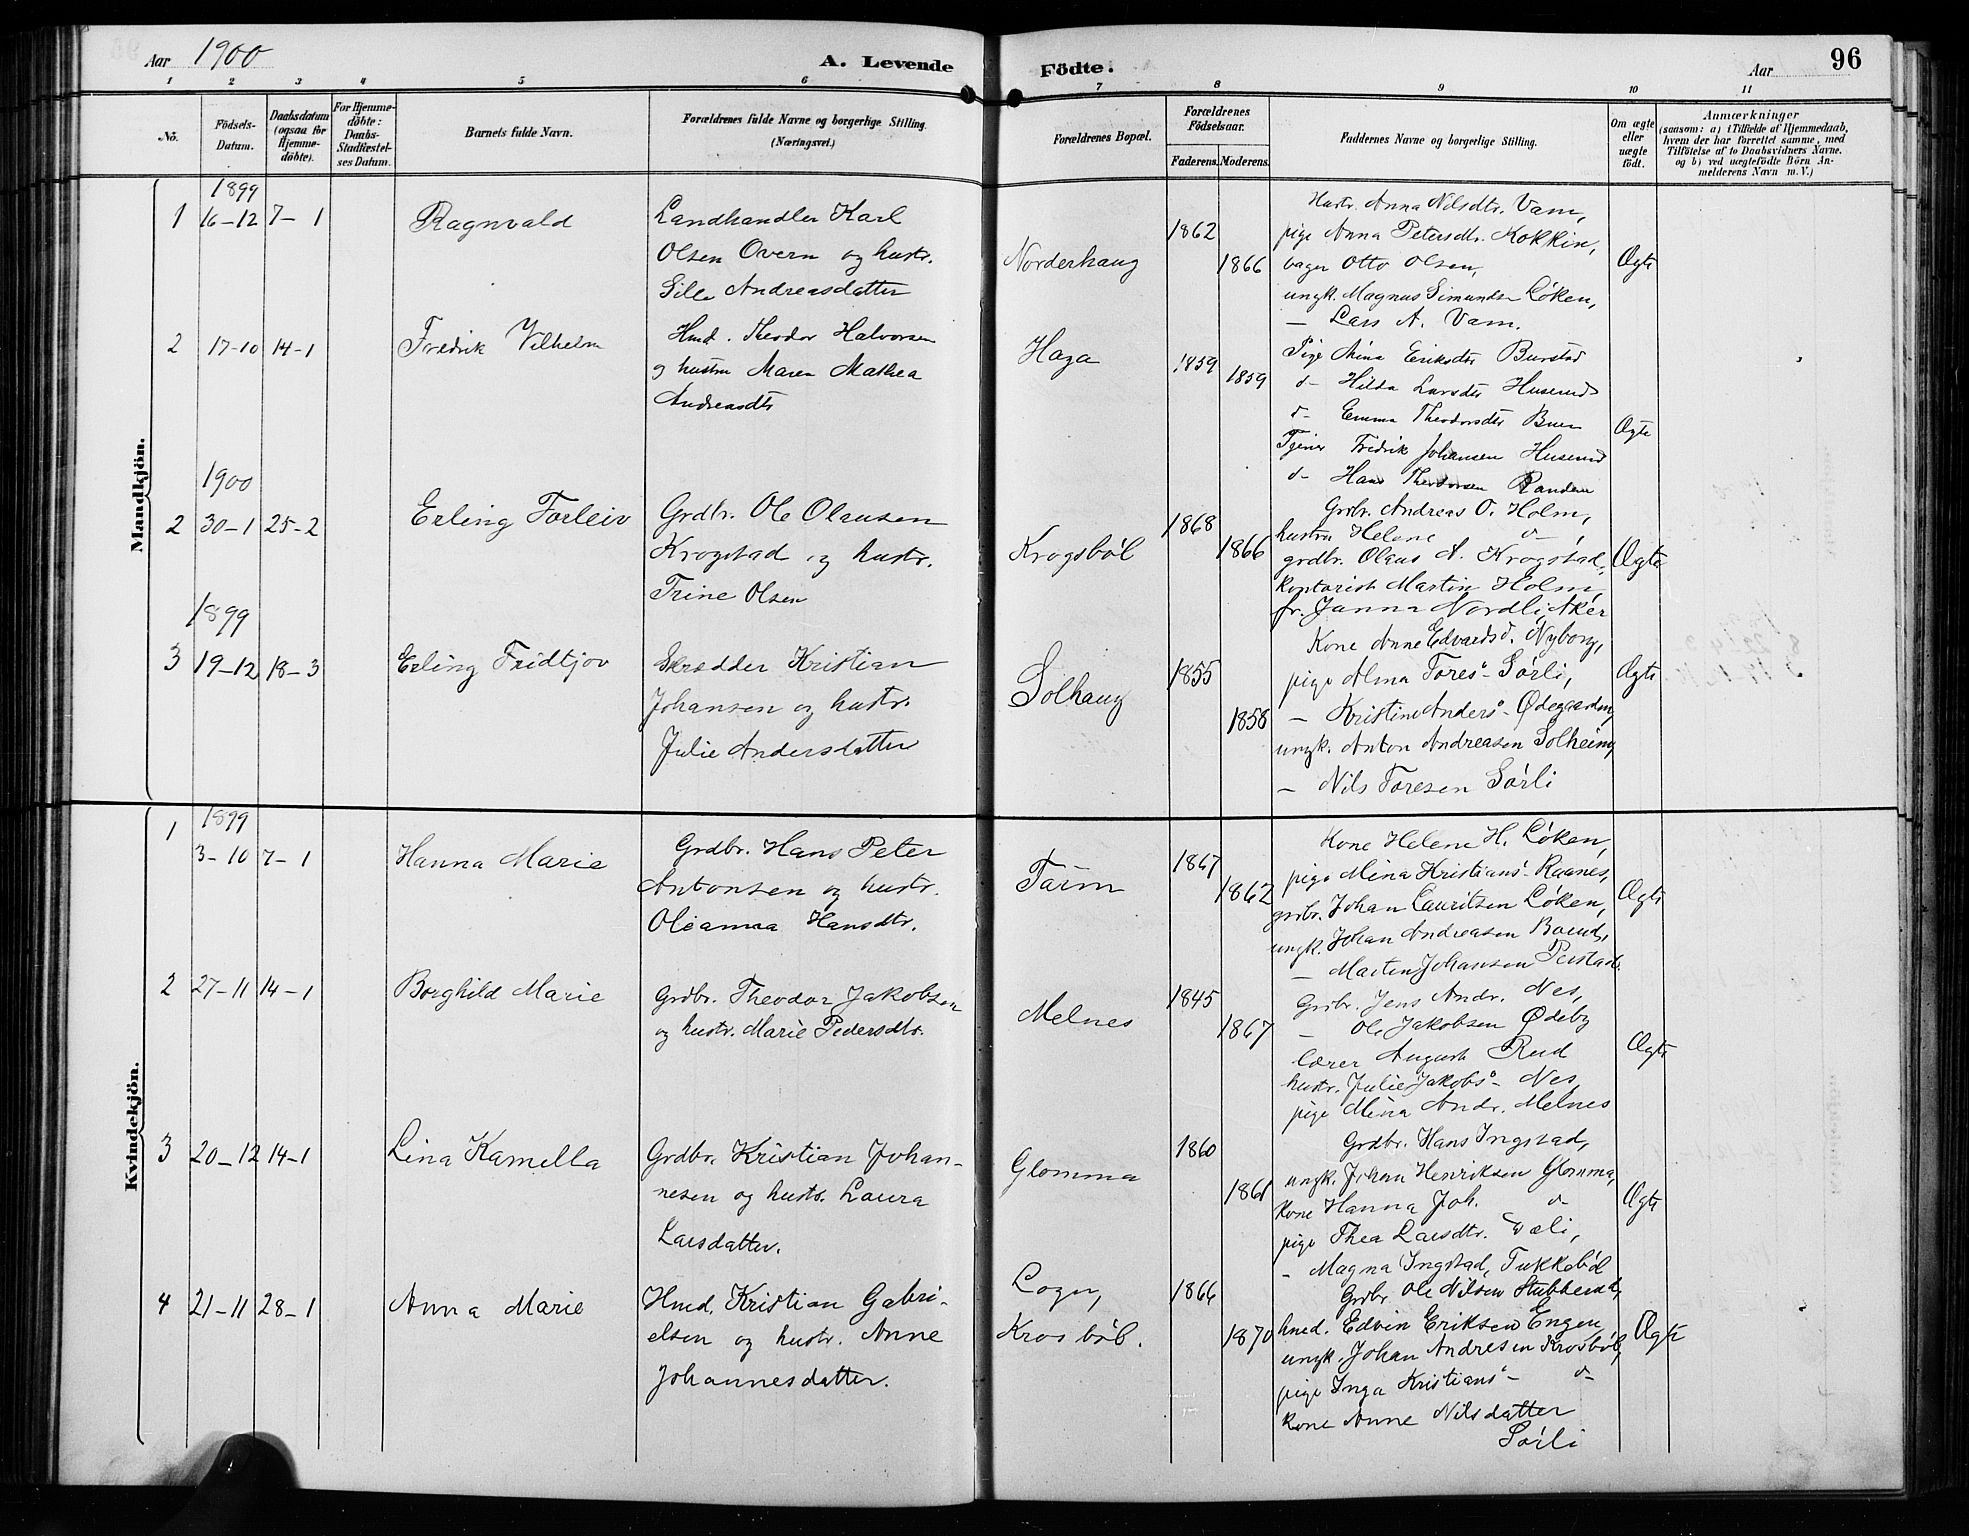 Aar 1900
A. Levende
Födte.
Aar
96
1 2 3 4 5 6 7 8 9 10 11
No.
Födsels-Datum.
Daabsdatum (ogsaa for Hjemme-döbte).
For Hjemme-döbte: Daabs-Stadfæstel-ses Datum.
Barnets fulde Navn.
Forældrenes fulde Navne og borgerlige Stilling. (Næringsvei.)
Forældrenes Bopæl.
Forældrenes Födselsaar.
Faderens. Moderens.
Faddernes Navne og borgerlige Stilling.
Om ægte eller uægte födt.
Anmærkninger
(saasom: a) i Tilfælde af Hjemmedaab,
hvem der har forrettet samme, med
Tilföielse af to Daabsvidners Navne.
og b) ved uægtefödte Börn An-
melderens Navn m. V.)
Mandkjön.
1899
1 16-12 7-1 Ragnvald
Landhandler Karl
Olsen Overn og hustr.
Sille Andreasdatter
Norderhaug
1862
1866
Hustr. Anna Nilsdtr. Vam,
pige Anna Petersdtr. Kokkin,
bager Otto Olsen,
ungk. Magnus Simensen Löken,
— Lars A. Vam.
Ægte
2 17-10 14-1 Fredrik Vilhelm
Hmd. Theodor Halvorsen
og hustru Maren Mathea
Andreasdtr
Haga
1859
1859
Pige Mina Eriksdtr Burstad
d- Hilda Larsdtr Huserud
d- Emma Theodorsdtr Buen
Tjener Fredrik Johansen Huserud
d- Hans Theodorsen Randem
Ægte
1900
2 30-1 25-2 Erling Torleiv
Grdbr. Ole Olausen
Krogstad og hustr.
Trine Olsen
Krogsböl
1868
1866
Grdbr. Andreas O. Holm,
hustru Helene d-,
grdbr. Olaus A. Krogstad,
kontorist Martin Holm,
fr. Janna Nordli, Aker
Ægte
1899
3 19-12 18-3 Erling Fridtjov
Skrædder Kristian
Johansen og hustr.
Julie Andersdatter
Solhaug
1855
1858
Kone Anne Edvardsd. Nyborg,
pige Alma Tores- Sörli,
— Kristine Anders- Ødegaarden,
ungk. Anton Andreasen Solheim,
— Nils Toresen Sörli
Ægte
Kvindekjön.
1899
1 3-10 7-1 Hanna Marie
Grdbr. Hans Peter
Antonsen og hustr.
Oleanna Hansdtr.
Tarm
1867
1862
Kone Helene H. Löken,
pige Mina Kristians- Raanes,
grdbr. Johan Lauritsen Löken,
ungk. Johan Andreasen
— Martin Johansen
Ægte
2 27-11 14-1 Borghild Marie
Grdbr. Theodor Jakobsen
og hustr. Marie Pedersdtr.
Melnes
1845
1867
Grdbr. Jens Andr. Nes,
— Ole Jakobsen Ødeby
Lærer August Rud
hustr. Julie Jakobs- Nes,
pige Mina Andr. Melnes
Ægte
3 20-12 14-1 Lina Kamella
Grdbr. Kristian Johan-
nesen og hustr. Laura
Larsdatter.
Glomma
1860
1861
Grdbr. Hans Ingstad,
ungk. Johan Henriksen Glomma,
kone Hanna Joh. d-
pige Thea Larsdtr. Dæli,
- Magna Ingstad, Tukkeböl
Ægte
4 21-11 28-1 Anna Marie
Hmd. Kristian Gabri-
elsen og hustr. Anne
Johannesdatter.
Logn,
Krosböl.
1866
1870
Grdbr Ole Nilsen Stubberud,
hmd. Edvin Eriksen Engen,
ungk. Johan Andresen Krosböl,
pige Inga Kristians- d-
kone Anne Nilsdatter
Sörli
Ægte